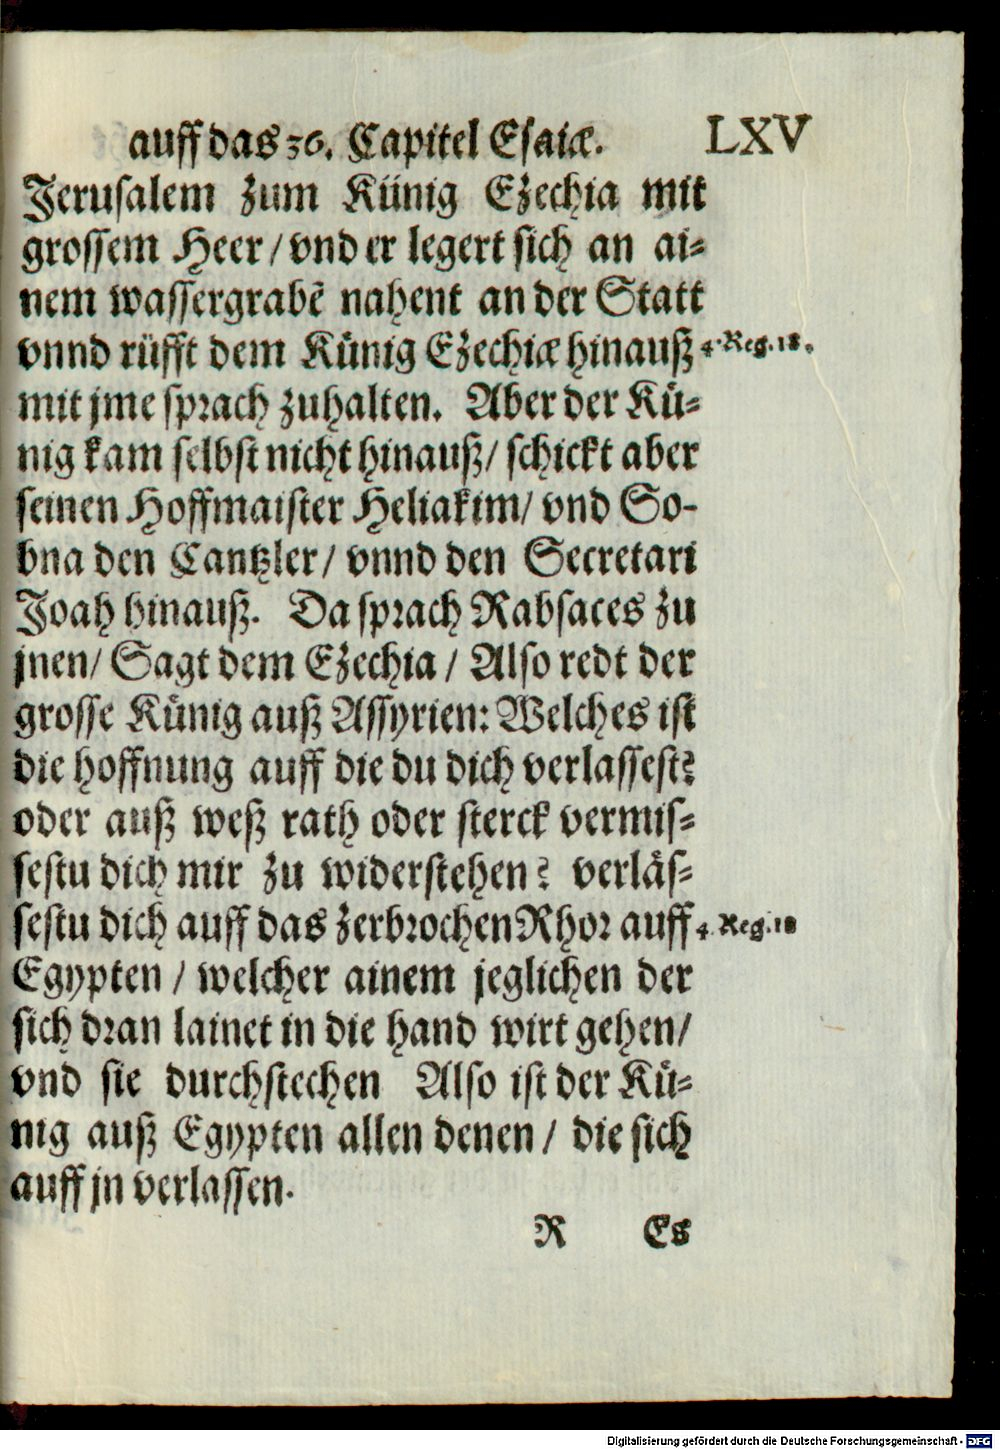 auff das 36. Capitel Esaiæ. LXV
Jerusalem zum Künig Ezechia mit
grossem Heer / vnd er legert sich an ai⸗
nem wassergrabē nahent an der Statt
vnnd rüfft dem Künig Ezechiæ hinauß 4. Reg. 18.
mit jme sprach zuhalten. Aber der Kü⸗
nig kam selbst nicht hinauß / schickt aber
seinen Hoffmaister Heliakim / vnd So-
bna den Cantzler / vnnd den Secretari
Joah hinauß. Da sprach Rabsaces zu
jnen / Sagt dem Ezechia / Also redt der
grosse Künig auß Assyrien: Welches ist
die hoffnung auff die du dich verlassest?
oder auß weß rath oder sterck vermis⸗
sestu dich mir zu widerstehen? verläs⸗
sestu dich auff das zerbrochen Rhor auff 4. Reg. 18
Egypten / welcher ainem jeglichen der
sich dran lainet in die hand wirt gehen /
vnd sie durchstechen Also ist der Kü⸗
nig auß Egypten allen denen / die sich
auff jn verlassen.
R Es
Digitalisierung gefördert durch die Deutsche Forschungsgemeinschaft - DFG